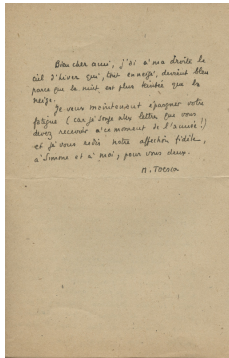 Bien cher ami, j'ai à ma droite le
ciel d'hiver qui, tout ennuagé, devient bleu
parce que la nuit est plus teintée que la
neige.
Je veux maintenant épargner votre
fatigue (car je songe aux lettres que vous
devez recevoir à ce moment de l'année !)
et je vous redis notre affection fidèle,
à Simone et à moi, pour vous deux.